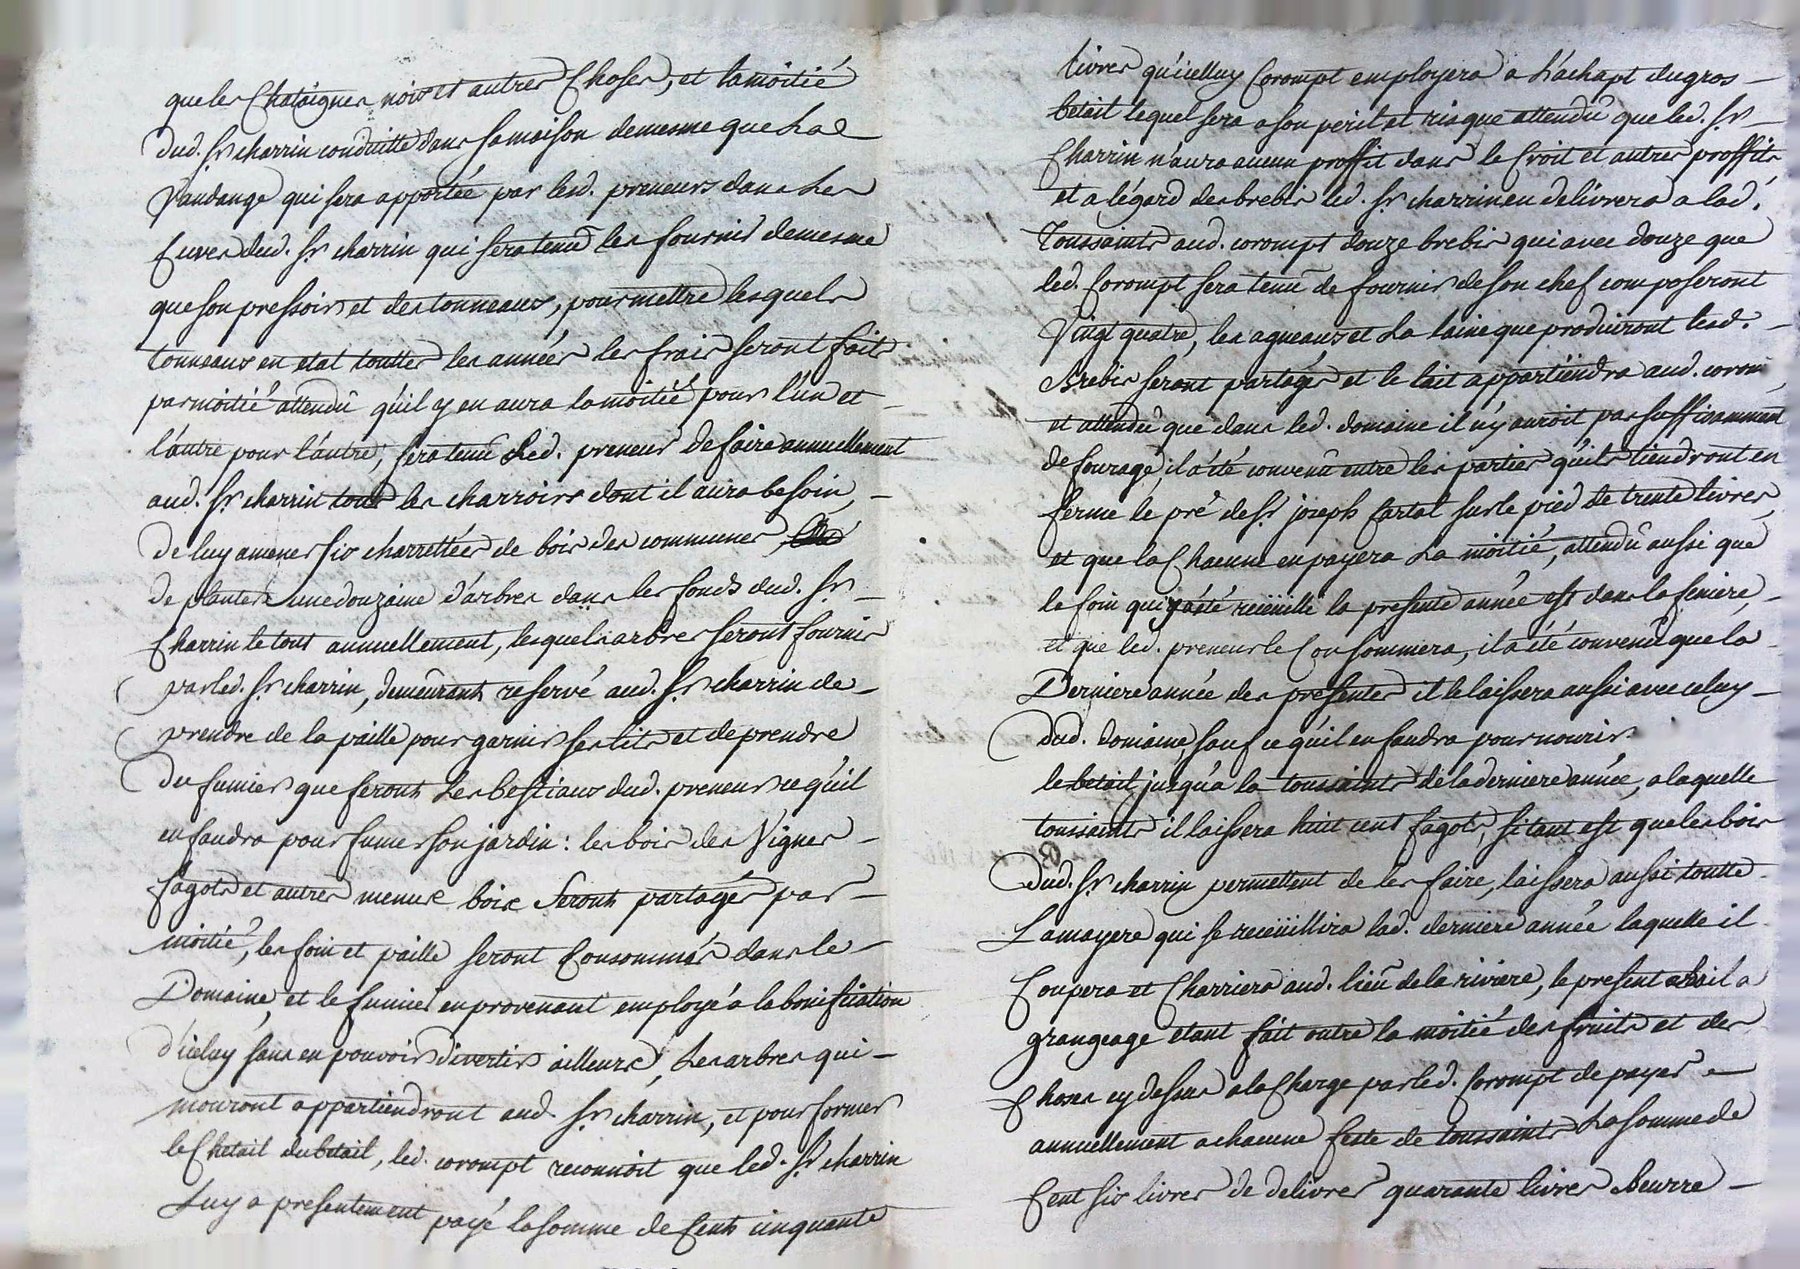 que les Chataignes noix et autres Choses, et la moitié
dud. Sr charrin conduitte dans sa maison demesme que La
Vandange qui sera apportée par lesd. preneurs dans Les
Cuves dud. Sr charrin qui sera tenû les fournir demesme
que son pressoir et des tonneaux, pour mettre lesquels
tonneaux en etat touttes les années les frais seront faits
par moitié attendû qu'il y en aura la moitié pour l'un et
l'autre pour l'autre, sera tenû Led. preneur de faire annuellement
aud. Sr charrin tous les charroirs dont il aura besoin,
De luy amener six charrettées de bois des communes
de planter une douzaine d'arbres dans les fonds dud. Sr
Charrin le tout annuellement, lesquels arbres seront fournis
par led. Sr charrin, demeûrant reservé aud. Sr charrin de
prendre de la paille pour garnir ses lits et de prendre
du fumier que feront Les bestiaux dud. preneur ce qu'il
en faudra pour fumer son jardin : les bois des Vignes
fagots et autres menus bois seront partagés par
moitié, les foin et paille seront Consommés dans le
Domaine, et le fumier en provenant employé a la bonification
d'iceluy sans en pouvoir divertir ailleurs, Les arbres qui
mouront appartiendront aud. Sr charrin, et pour former
le Chetail du betail, led. corompt reconnoit que led. Sr charrin
Luy a presentement payé la somme de Cent cinquante
livres qu'icelluy Corompt employera a L'achapt du gros
betail lequel sera a son peril et risque attendû que led. Sr
Charrin n'aura aucun proffit dans le Croit et autres proffits
et a l'égard des brebis led. Sr charrin en delivrera a lad.
Toussaints aud. corompt douze brebis qui avec douze que
led. Corompt sera tenû de fournir de son chef composeront
Vingt quatre, les agneaux et La laine que produiront lesd.
Brebis seront partagés et le lait appartiendra aud. corom
et attendû que dans led. domaine il n'y auroit pas suffisamment
de fourage, il a été convenû entre les parties qu'ils tiendront en
ferme le pré de Sr joseph Cartal sur le pied de trente livres,
et que la Chacun en payera La moitié, attendû aussi que
le foin qui a été recüeilli la presente année est dans la feniere,
et que led. preneur le Consommera, il a été convenû que la
Derniere année des presentes il le laissera aussi avec celuy
dud. domaine, sauf ce qu'il en faudra pour nourir
le betail jusqu'a la toussaints de la derniere année, a laquelle
toussaints il laissera huit cent fagots, si tant est que les bois
dud. Sr charrin permettent de les faire, laissera aussi toutte
La mayere qui se recüeillira lad. derniere année laquelle il
Coupera et Charriera aud. lieû de la riviere, le present bail a
grangeage etant fait outre la moitié des fruits et des
Choses cy dessus a la Charge par led. Corompt de payer
annuellement a chacune feste de toussaints La somme de
Cent six livres de delivrer quarante livres Beurre